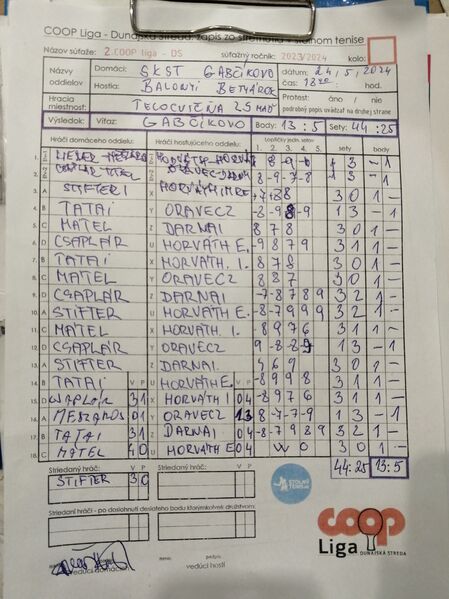 COOP Liga - Dunajská Streda: zápis zo stretnutia v stolnom tenise
Názov súťaže: 2.COOP liga - DS súťažný ročník: 2023/2024 kolo:
Názvy oddielov Domáci: SKST GABČÍKOVO dátum: 24, 5, 2024
Hostia: BALONYI BETYÁROK čas: 18
Hracia miestnosť: TELOCVIČŇA ZŠ MAĎ Protest: áno / nie podrobný popis uvádzať na druhej strane
Výsledok: Víťaz: GABČÍKOVO Body: 13 : 5 Sety: 44 : 25
Hráči domáceho oddielu: Hráči hosťujúceho oddielu: Loptičky jedn. setov 1. 2. 3. 4. 5. sety body
1.
2.
3. A STIFTER X HORVÁTH IMRE 3 0 1 -
4. B TATAI Y ORAVECZ -8 -9 8 -9 1 3 - 1
5. C MATEL Z DARNAI 8 7 8 3 0 1 -
6. D CSAPLÁR U HORVÁTH E. -9 8 7 9 3 1 1 -
7. B TATAI X HORVÁTH. I. 8 7 8 3 0 1 -
8. C MATEL Y ORAVECZ 8 8 7 3 0 1 -
9. D CSAPLÁR Z DARNAI -7 -8 7 8 9 3 2 1 -
10. A STIFTER U HORVÁTH E -8 -7 9 9 9 3 2 1 -
11. C MATEL X HORVÁTH. I. -8 9 7 6 3 1 1 -
12. D CSAPLÁR Y ORAVECZ 9 -8 -8 -9 1 3 - 1
13. A STIFTER Z DARNAI. 4 6 9 3 0 1 -
14. B TATAI V P U HORVÁTH E. V P -8 9 9 8 3 1 1 -
15. D CSAPLÁR 3 1 X HORVÁTH I 0 4 -8 9 7 6 3 1 1 -
16. A MESZÁROS 0 1 Y ORAVECZ 1 3 -8 -7 7 -9 1 3 - 1
17. B TATAI 3 1 Z DARNAI 0 4 -8 -7 9 8 9 3 2 1 -
18. C MATEL 4 0 U HORVÁTH E 0 4 W O 3 0 1 -
Striedaný hráč: V P Striedaný hráč: V P 44:25 13:5
STIFTER 3 0
STOLNÝ TENIS
Striedaní hráči - po dosiahnutí desiateho bodu ktorýmkoľvek družstvom:
coop
Liga DUNAJSKÁ STREDA
meno podpis
vedúci domácich vedúci hostí